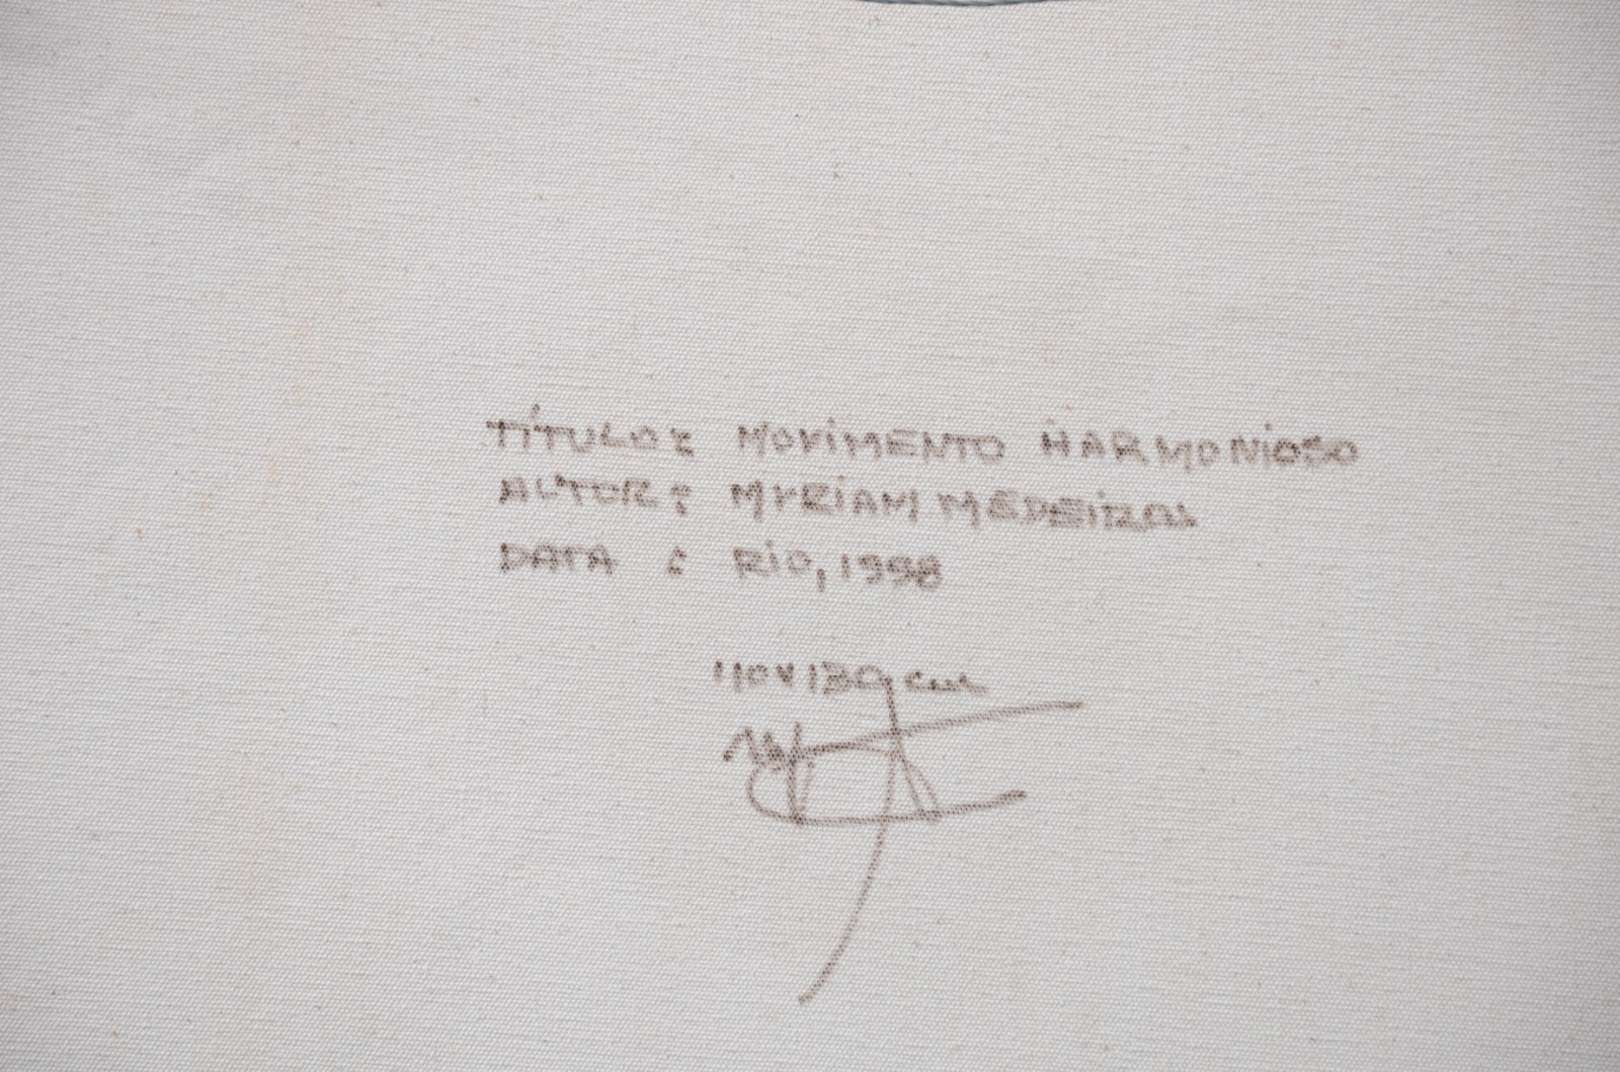 TÍTULO: MOVIMENTO HARMONIOSO
AUTOR: MYRIAM MEDEIROS
DATA : RIO, 1998